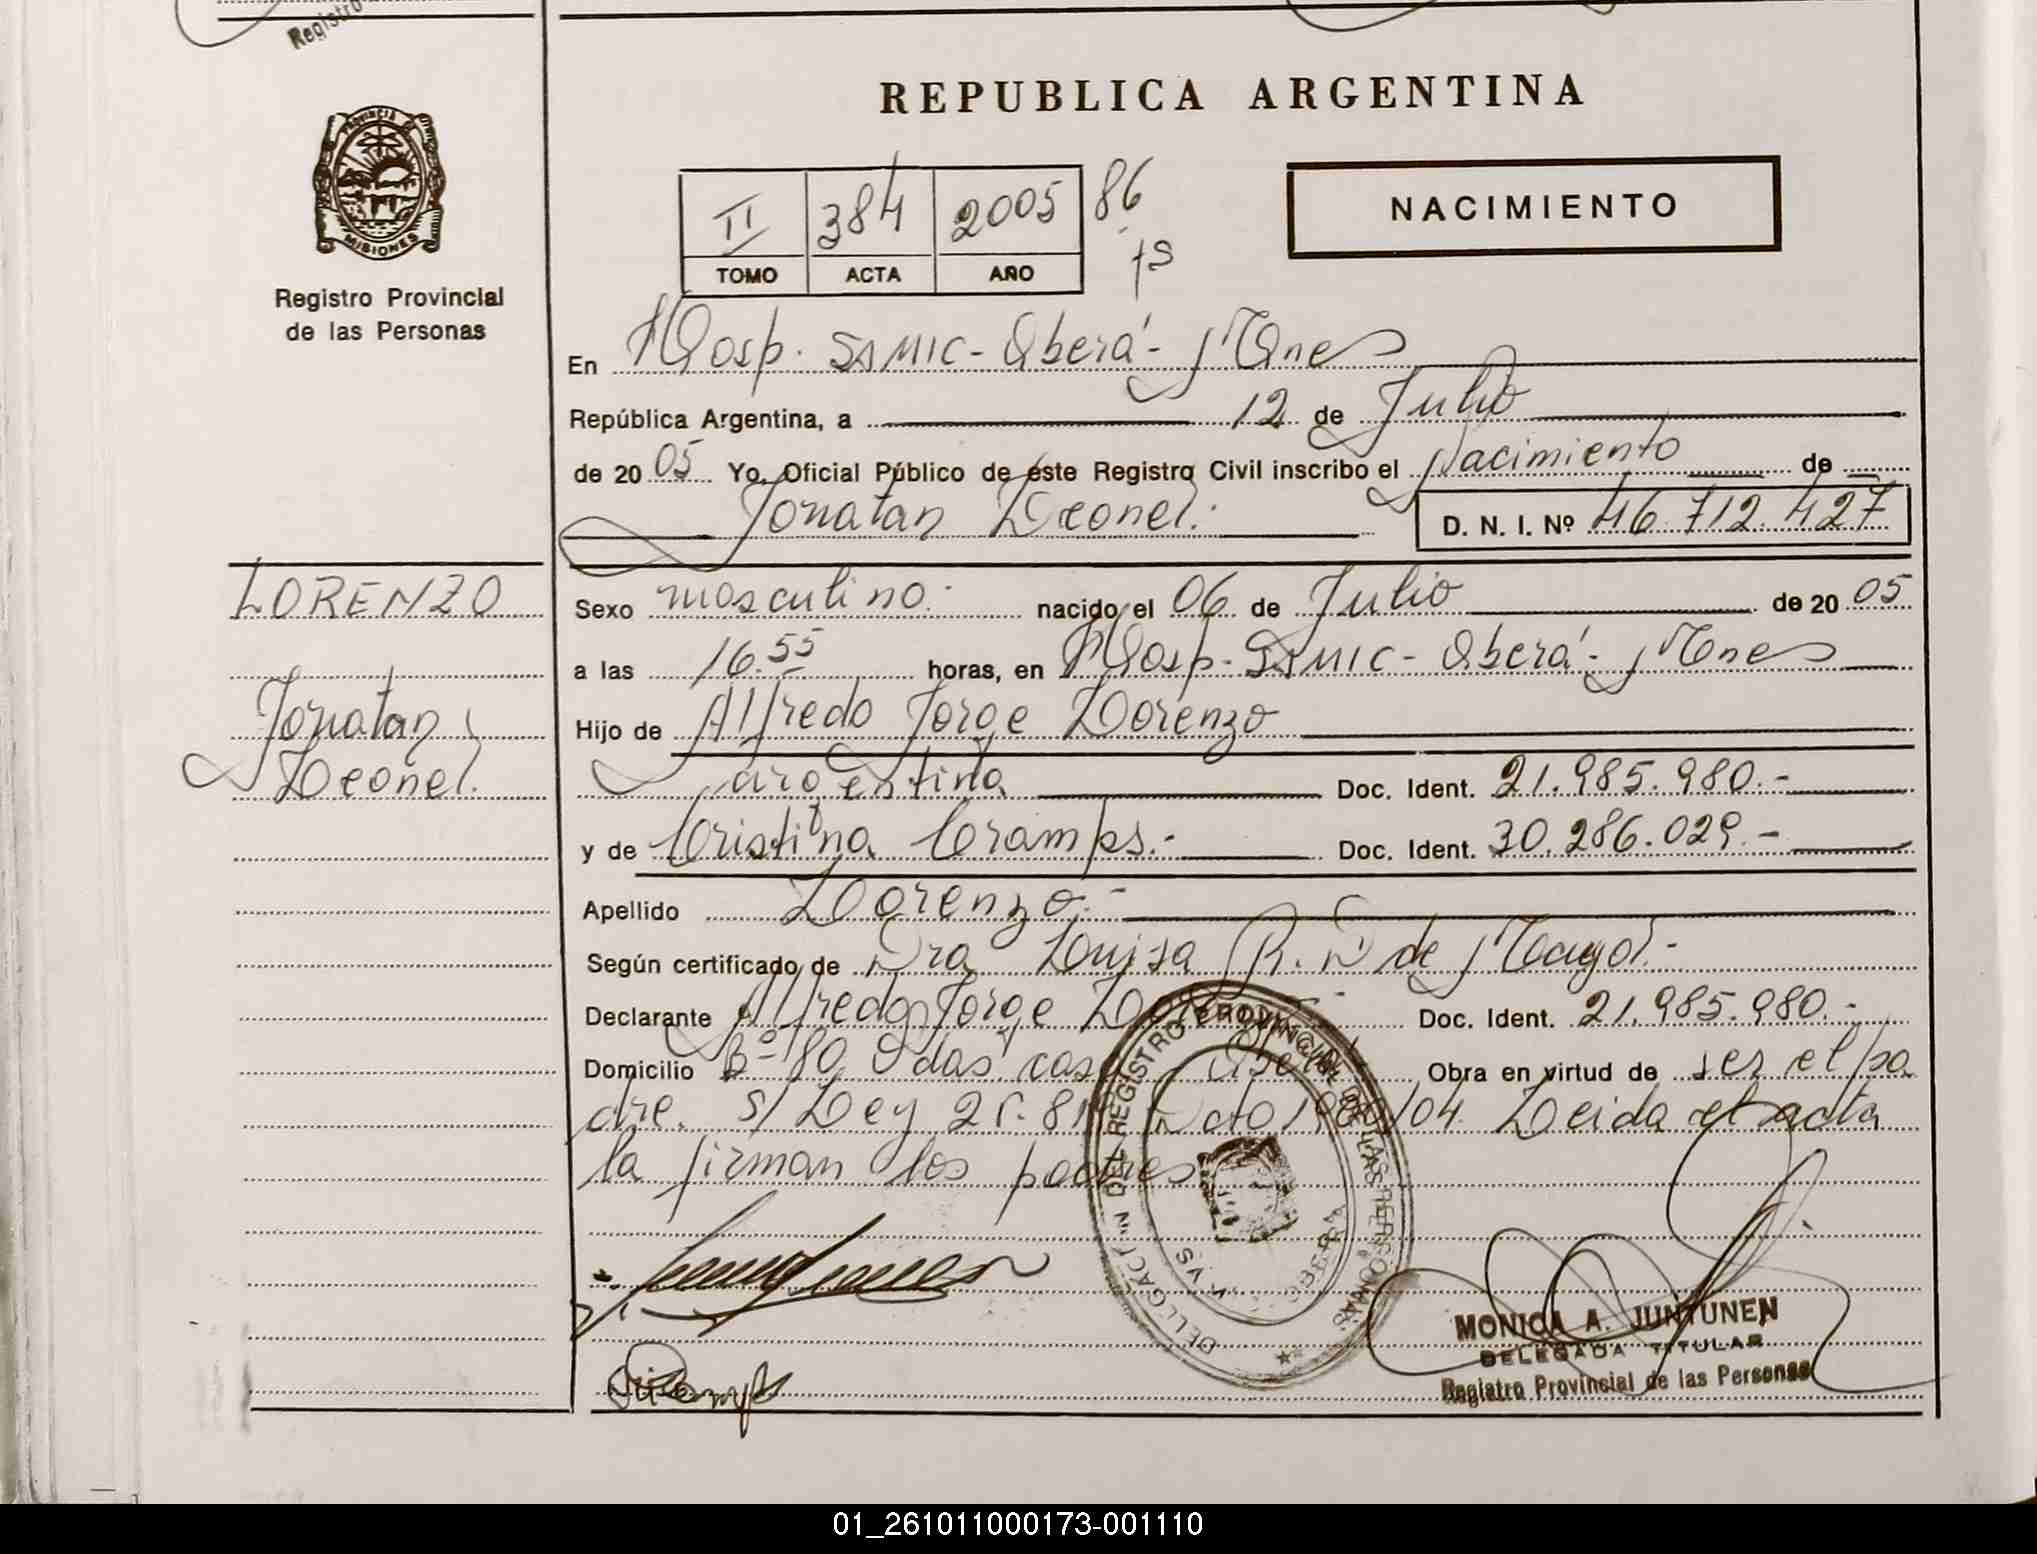 Registro
REPUBLICA ARGENTINA
PROVINCIA DE
MISIONES
Registro Provincial
de las Personas
II 384 2005 86
TOMO ACTA AÑO fs
NACIMIENTO
En Hosp. SAMIC - Oberá - Mnes
República Argentina, a 12 de Julio
de 20 05 Yo, Oficial Público de éste Registro Civil inscribo el Nacimiento de
Jonatan Leonel.
D. N. I. Nº 46.712.427
LORENZO
Jonatan
Leonel.
Sexo masculino. nacido el 06 de Julio de 20 05
a las 16.55 horas, en Hosp. SAMIC - Oberá - Mnes
Hijo de Alfredo Jorge Lorenzo
argentina Doc. Ident. 21.985.980.-
y de Cristina Cramps.- Doc. Ident. 30.286.029.-
Apellido Lorenzo.-
Según certificado de Dra Luisa R. D de
Declarante Alfredo Jorge Doc. Ident. 21.985.980.-
Domicilio Bº 80 Obra en virtud de ser el pa
dre. s/ Ley Leida el acta
la firman los padres
DELEGACIÓN DEL REGISTRO PROVINCIAL DE LAS PERSONAS
OBERA
MONICA A. JUNTUNEN
DELEGADA TITULAR
Registro Provincial de las Personas
01_261011000173-001110